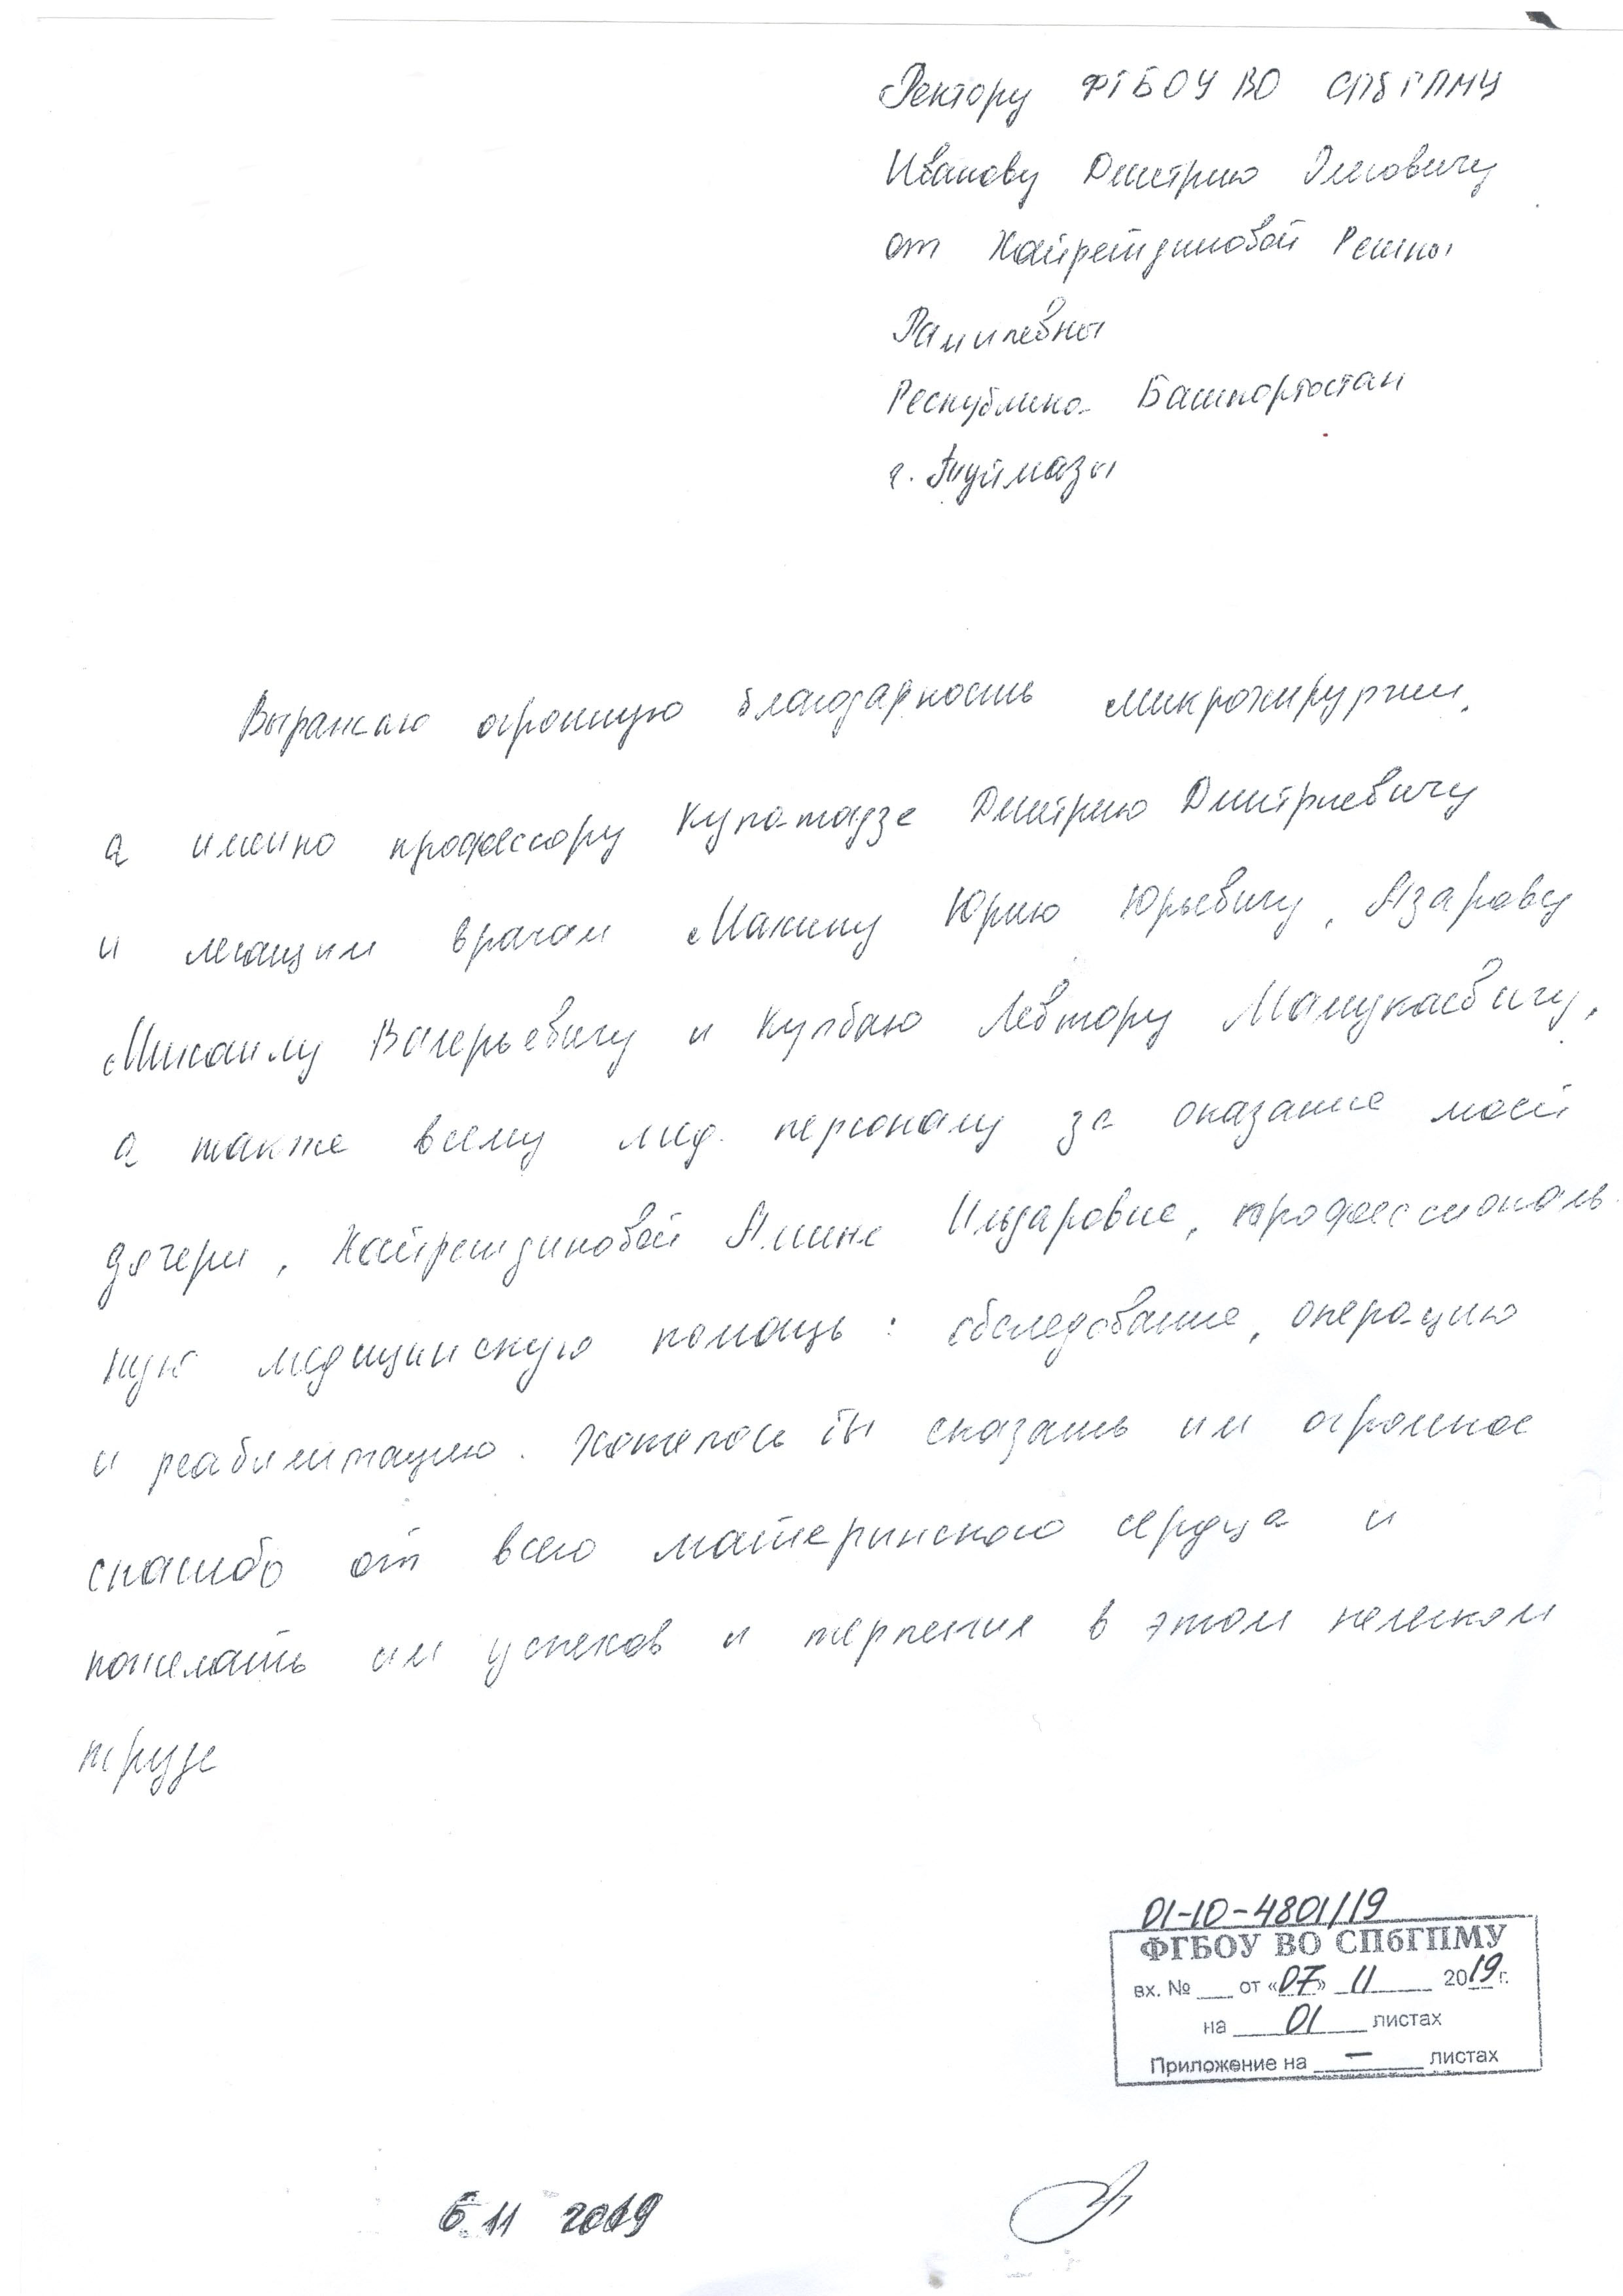 Ректору ФГБОУ ВО СПбГПМУ
Иванову Дмитрию Олеговичу
от Хайретдиновой Регины
Рамилевны
Республика Башкортостан
г. Туймазы
Выражаю огромную благодарность микрохирургии,
а именно профессору Купатадзе Дмитрию Дмитриевичу
и лечащим врачам Махину Юрию Юрьевичу, Азарову
Михаилу Валерьевичу и Кулбаю Левтору Манукаевичу,
а также всему мед. персоналу за оказание моей
дочери, Хайретдиновой Амине Ильдаровне, профессиональ-
ную медицинскую помощь: обследование, операцию
и реабилитацию. Хотелось бы сказать им огромное
спасибо от всего материнского сердца и
пожелать им успехов и терпения в этом нелегком
труде
01-10-4801/19
ФГБОУ ВО СПбГПМУ
вх. № ___ от «07» 11 2019 г.
на 01 листах
Приложение на — листах
6.11 2019